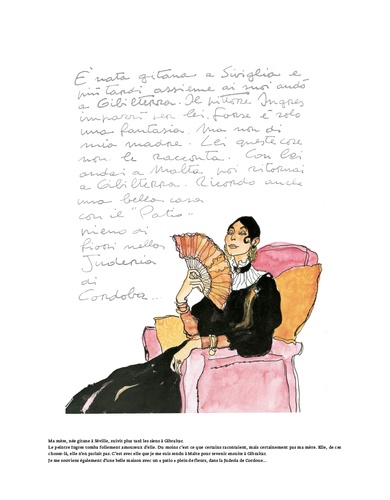 È nata gitana a Siviglia e
più tardi assieme ai suoi andò
a Gibilterra. Il pittore Ingres
impazzì per lei. Forse è solo
una fantasia. Ma non di
mia madre. Lei queste cose
non le racconta. Con lei
andai a Malta poi ritornai
a Gibilterra. Ricordo anche
una bella casa
con il "Patio"
pieno di
fiori nella
Juderia
di
Cordoba...
Ma mère, née gitane à Séville, suivit plus tard les siens à Gibraltar.
Le peintre Ingres tomba follement amoureux d'elle. Du moins c'est ce que certains racontaient, mais certainement pas ma mère. Elle, de ces
choses-là, elle n'en parlait pas. C'est avec elle que je me suis rendu à Malte pour revenir ensuite à Gibraltar.
Je me souviens également d'une belle maison avec un « patio » plein de fleurs, dans la Juderia de Cordoue...